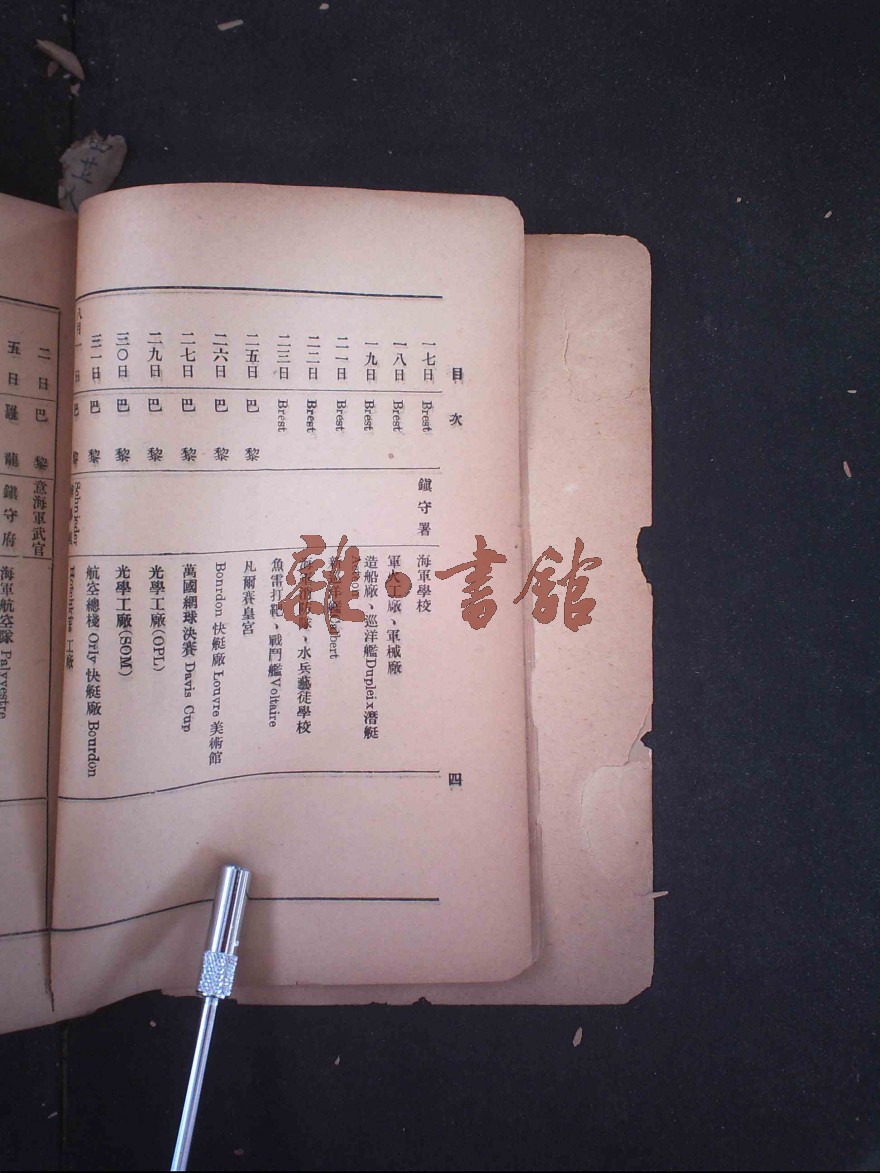 目次 四
一七日 Brest 鎭守署 海軍學校
一八日 Brest 軍火工廠、軍械廠
一九日 Brest 造船廠、巡洋艦Dupleix潛艇
二一日 Brest
二二日 Brest 水兵藝徒學校
二三日 Brest 魚雷打靶、戰鬥艦Voltaire
二五日 巴黎 凡爾賽皇宮
二六日 巴黎 Bonrdon 快艇廠 Louvre 美術館
二七日 巴黎 萬國網球決賽 Davis Cup
二九日 巴黎 光學工廠(OPL)
三〇日 巴黎 光學工廠(SOM)
三一日 巴黎 航空總棧 Orly 快艇廠 Bourdon
巴黎 工廠
二日 巴黎 意海軍武官
五日 羅龍 鎭守府 海軍航空隊 Palyvestre
雜·書館